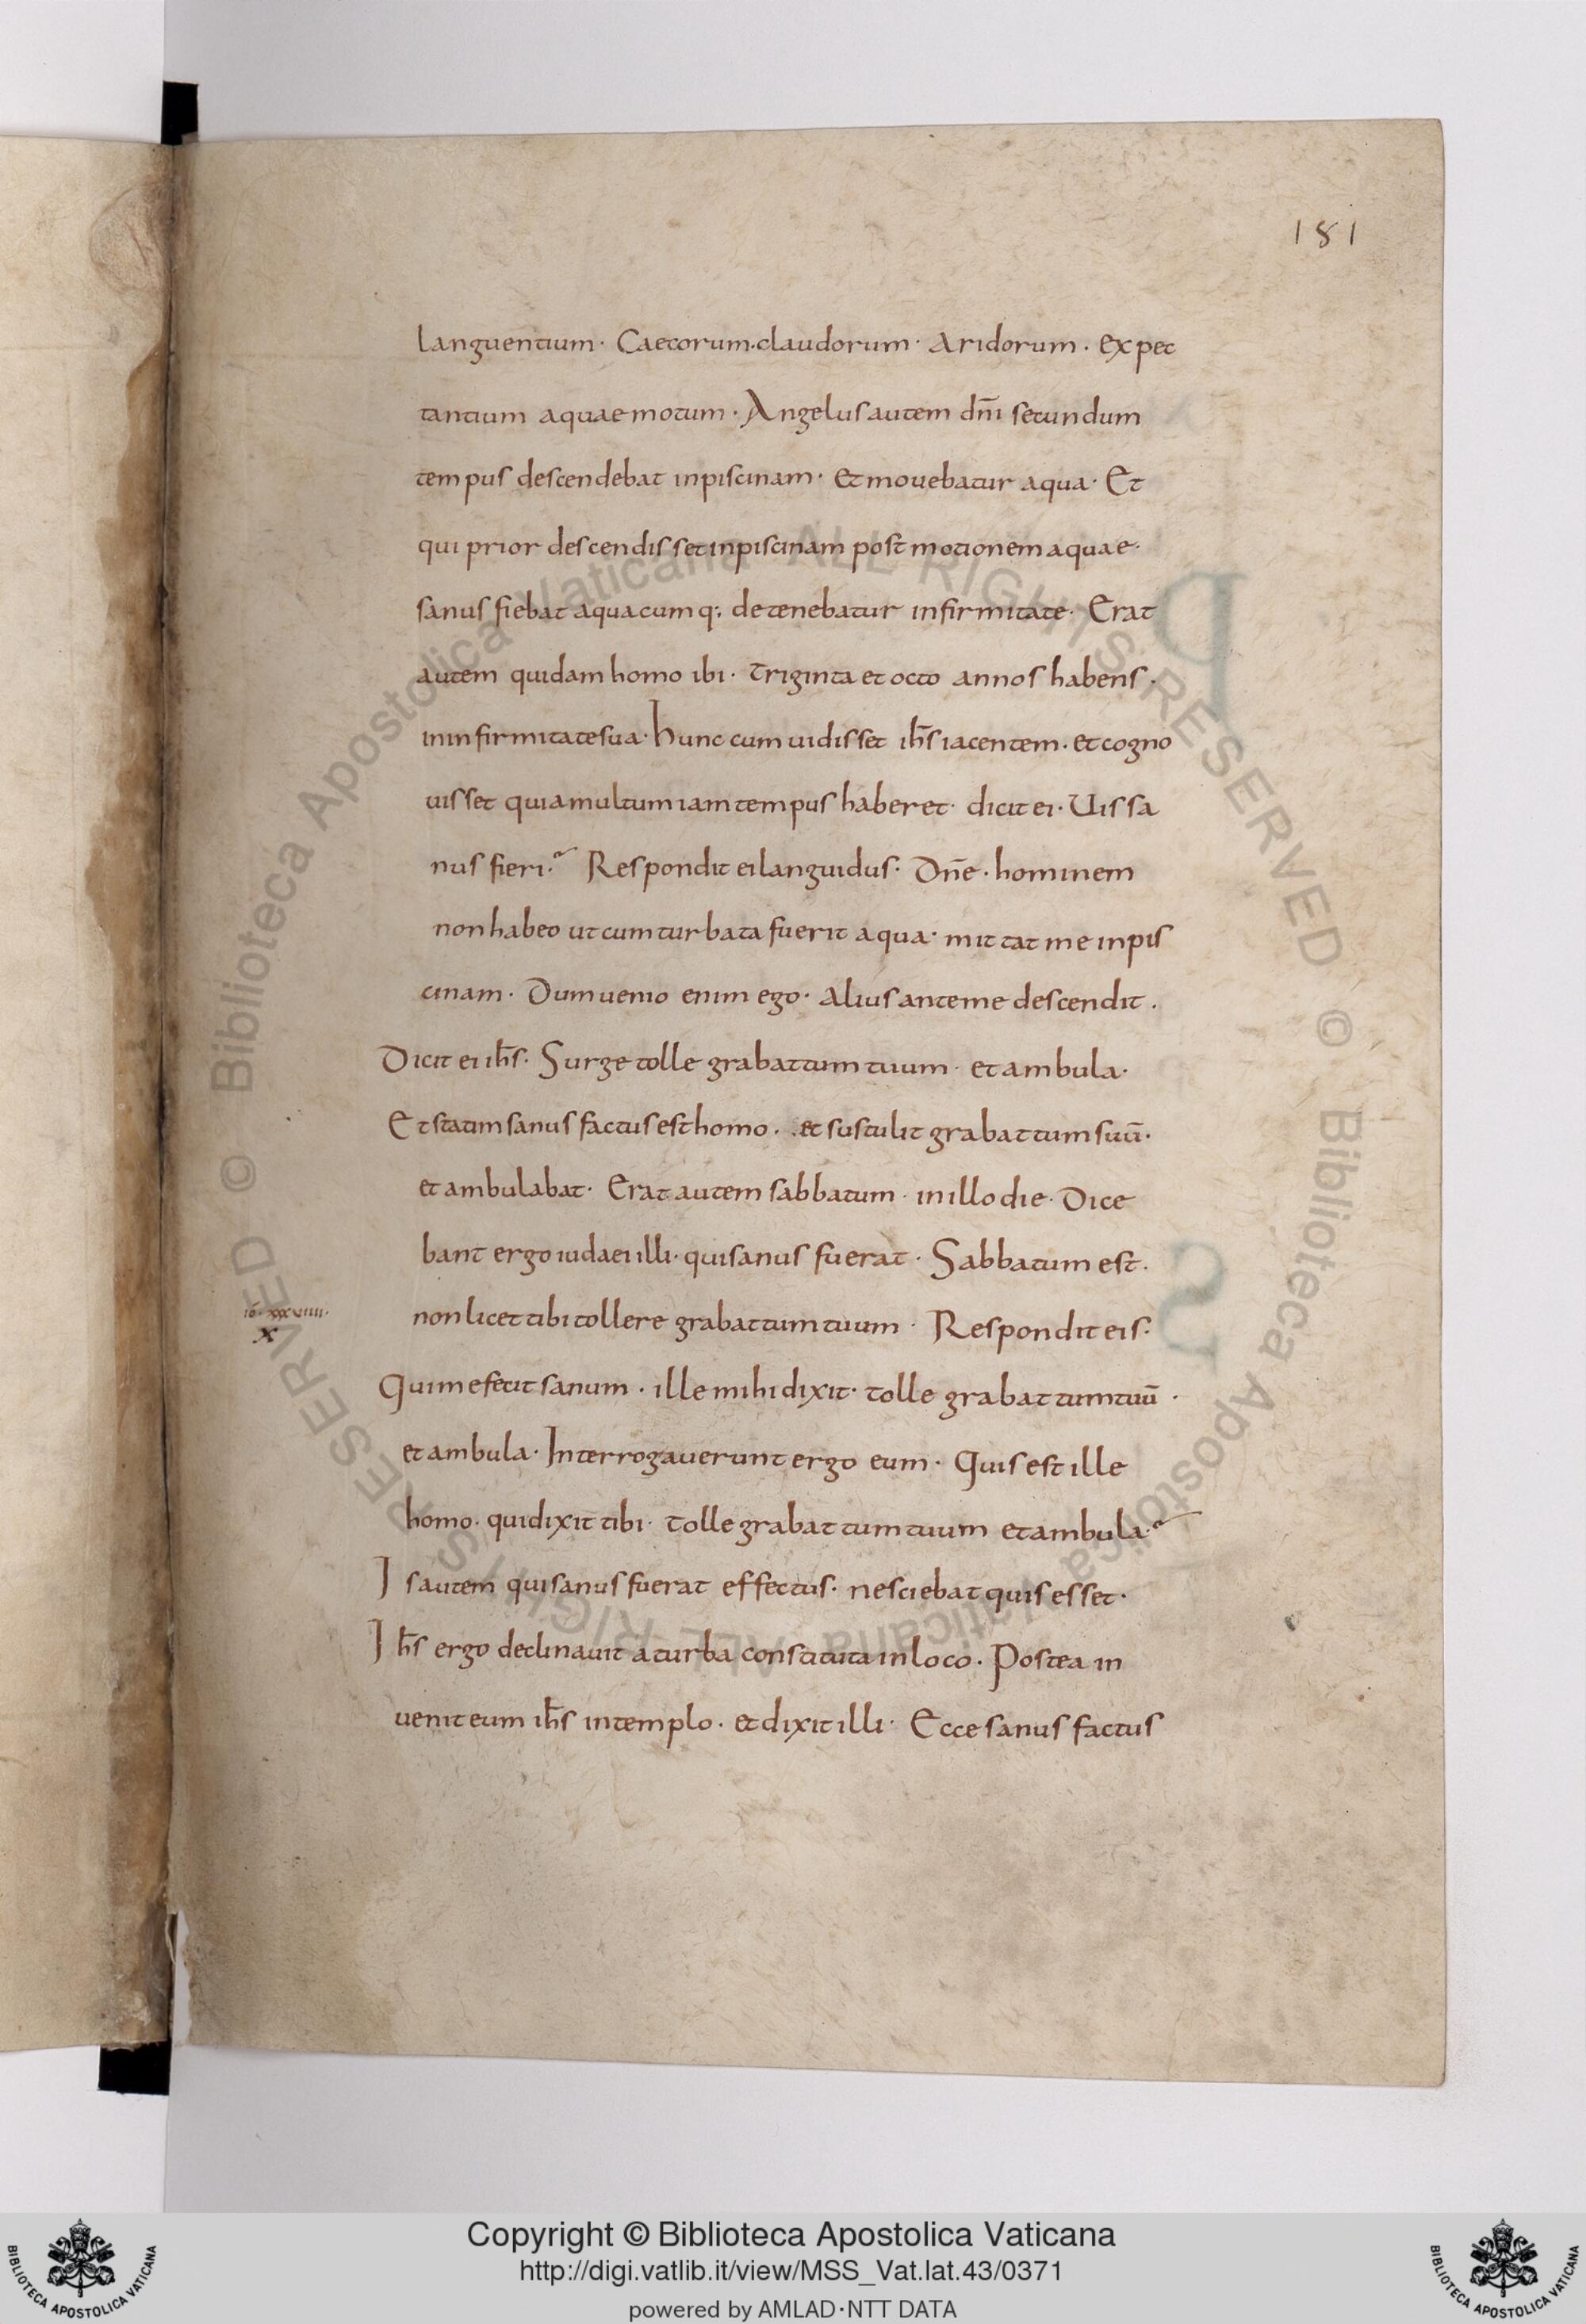 181
languentium· Caecorum·claudorum· Aridorum· expec
tantium aquae motum· Angelus autem dñi secundum
tempus descendebat in piscinam· Et movebatur aqua· Et
qui prior descendisset in piscinam post motionem aquae·
sanus fiebat aquacumq; detenebatur infirmitate· Erat
autem quidam homo ibi· triginta et octo annos habens·
in infirmitate sua· hunc cum vidisset ih̅s iacentem· et cogno
visset quia multum iam tempus haberet· dicit ei· Uis sa
nus fieri? Respondit ei languidus· Dñe· hominem
non habeo ut cum turbata fuerit aqua· mittat me in pis
cinam· Dum uenio enim ego· alius ante me descendit·
Dicit ei ih̅s· Surge tolle grabattum tuum· et ambula·
Et statim sanus factus est homo· et sustulit grabattum suū·
et ambulabat· Erat autem sabbatum· in illo die· Dice
bant ergo iudaei illi· qui sanus fuerat· Sabbatum est·
non licet tibi tollere grabattum tuum· Respondit eis·
ió· xxxviiii·
x
Qui me fecit sanum· ille mihi dixit· tolle grabattum tuū·
et ambula· Interrogaverunt ergo eum· Quis est ille
homo· qui dixit tibi· tolle grabattum tuum et ambula?
Is autem qui sanus fuerat effectus· nesciebat quis esset·
Ih̅s ergo declinavit a turba constituta in loco· Postea in
venit eum ih̅s in templo· et dixit illi· Ecce sanus factus
© Biblioteca Apostolica Vaticana ALL RIGHTS RESERVED
© Biblioteca Apostolica Vaticana ALL RIGHTS RESERVED
Copyright © Biblioteca Apostolica Vaticana
http://digi.vatlib.it/view/MSS_Vat.lat.43/0371
powered by AMLAD·NTT DATA
BIBLIOTECA APOSTOLICA VATICANA
BIBLIOTECA APOSTOLICA VATICANA